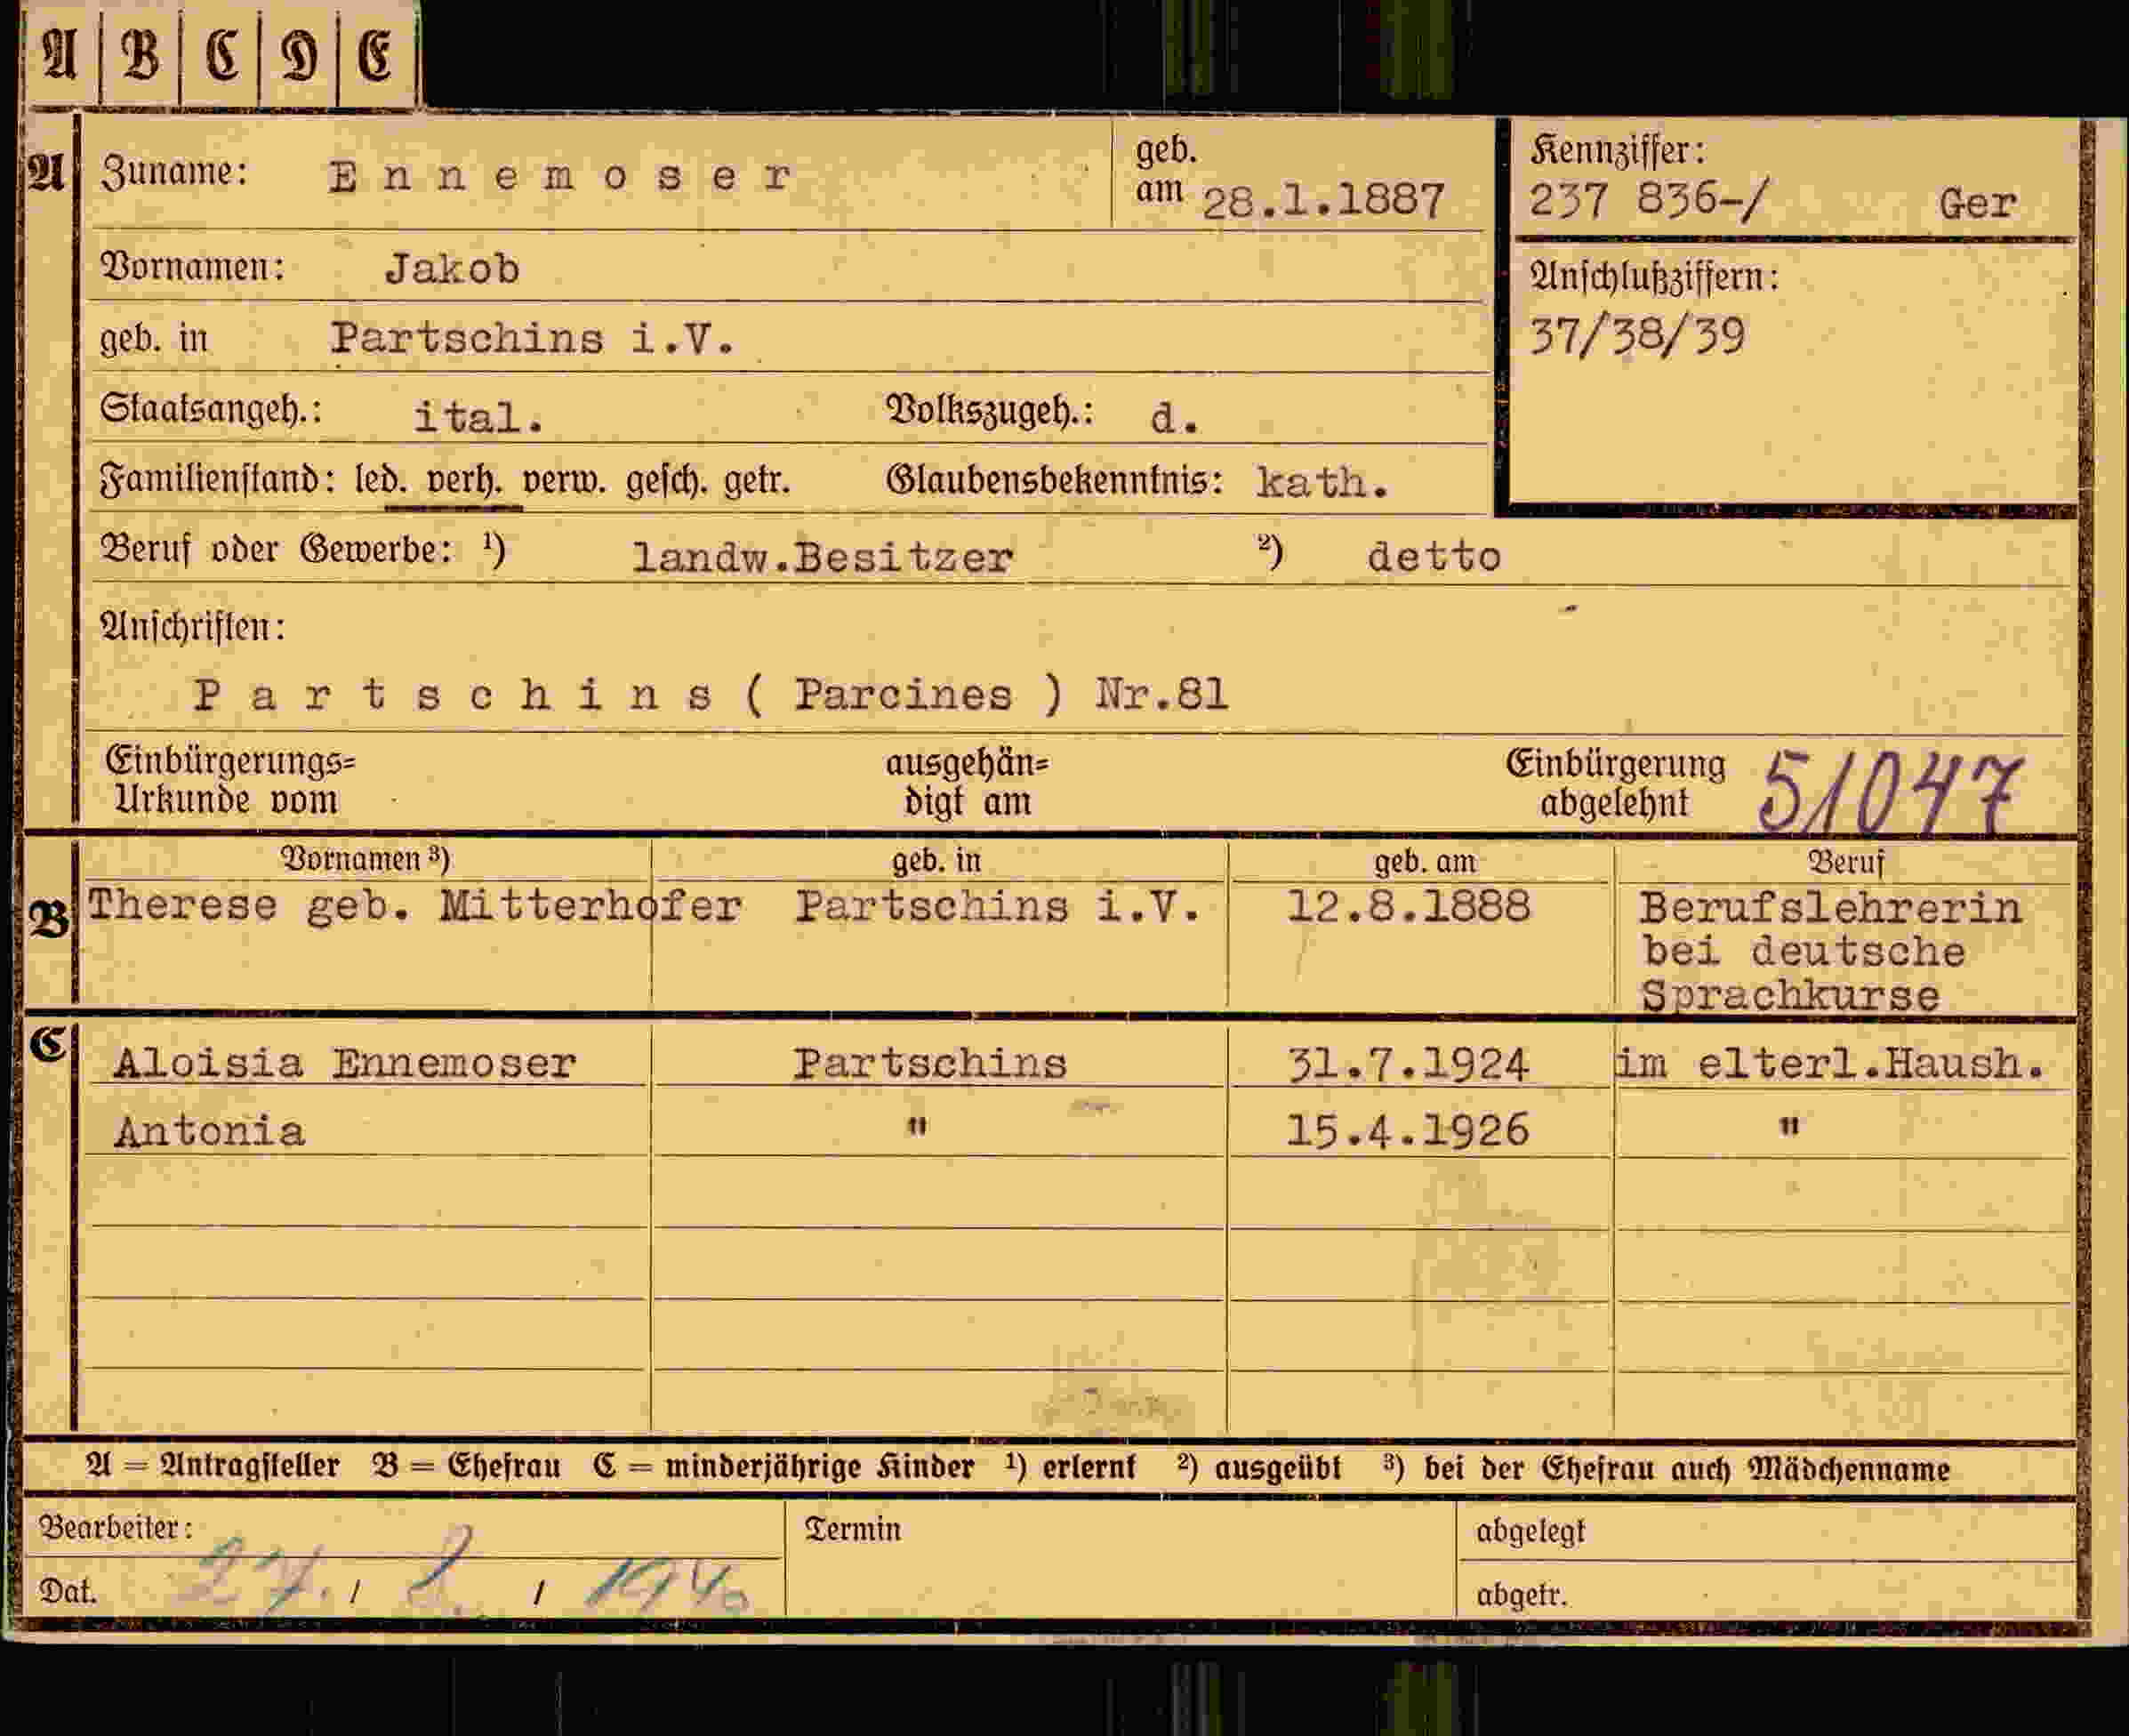 A B C D E
A Zuname: Ennemoser geb. am 28.1.1887 Kennziffer: 237 836-/ Ger
Vornamen: Jakob Anschlußziffern:
geb. in Partschins i.V. 37/38/39
Staatsangeh.: ital. Volkszugeh.: d.
Familienstand: led. verh. verw. gesch. getr. Glaubensbekenntnis: kath.
Beruf oder Gewerbe: ¹) landw.Besitzer ²) detto
Anschriften:
Partschins ( Parcines ) Nr.81
Einbürgerungs= ausgehän= Einbürgerung 51047
Urkunde vom digt am abgelehnt
Vornamen ³) geb. in geb. am Beruf
B Therese geb. Mitterhofer Partschins i.V. 12.8.1888 Berufslehrerin
bei deutsche
Sprachkurse
C Aloisia Ennemoser Partschins 31.7.1924 im elterl.Haush.
Antonia " 15.4.1926 "
A = Antragsteller B = Ehefrau C = minderjährige Kinder ¹) erlernt ²) ausgeübt ³) bei der Ehefrau auch Mädchenname
Bearbeiter: Termin abgelegt
Dat. 27. / 2. / 1940 abgetr.